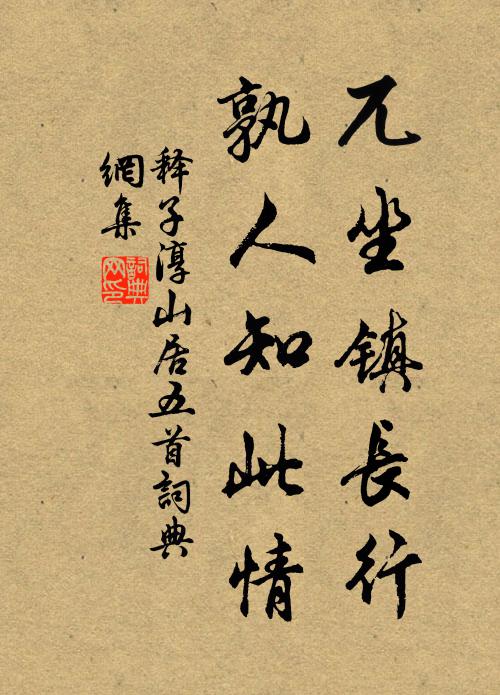 兀坐镇長行
孰人知此情
释子淳山居五首詞典
網集
詞典
网印